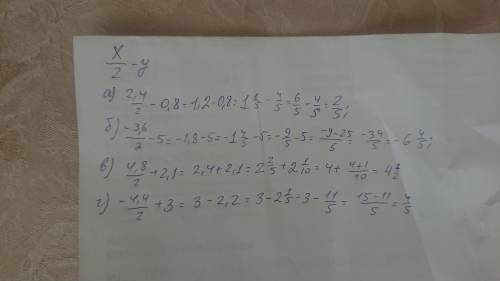 x/2 - y
а) 2,4/2 - 0,8 = 1,2 - 0,8 = 1 1/5 - 4/5 = 6/5 - 4/5 = 2/5;
б) -3,6/2 - 5 = -1,8 - 5 = -1 4/5 - 5 = -9/5 - 5 = -9-25/5 = -34/5 = -6 4/5;
в) 4,8/2 + 2,1 = 2,4 + 2,1 = 2 2/5 + 2 1/10 = 4 + 4+1/10 = 4 1/2
г) -4,4/2 + 3 = 3 - 2,2 = 3 - 2 1/5 = 3 - 11/5 = 15-11/5 = 4/5